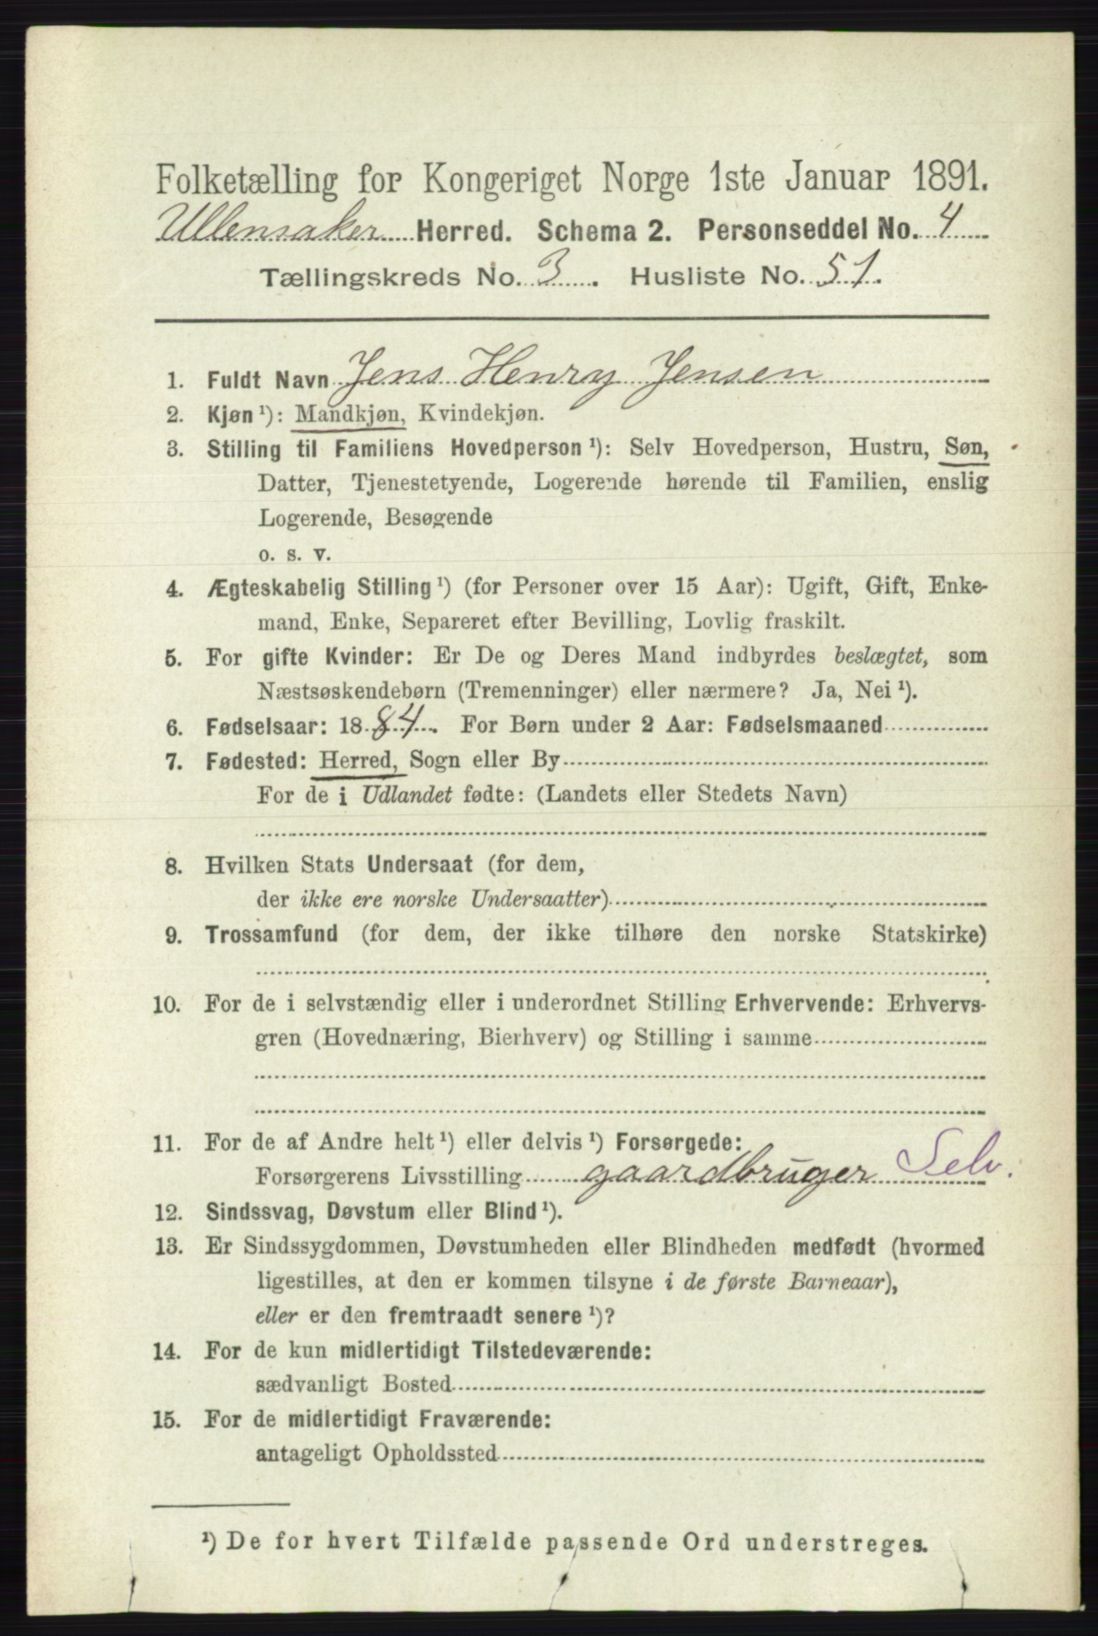 Folketælling for Kongeriget Norge 1ste Januar 1891.
Ullensaker Herred. Schema 2. Personseddel No. 4
Tællingskreds No. 3. Husliste No. 51.
1. Fuldt Navn Jens Henry Jensen
2. Kjøn ¹): Mandkjøn, Kvindekjøn.
3. Stilling til Familiens Hovedperson ¹): Selv Hovedperson, Hustru, Søn,
Datter, Tjenestetyende, Logerende hørende til Familien, enslig
Logerende, Besøgende
o. s. v.
4. Ægteskabelig Stilling ¹) (for Personer over 15 Aar): Ugift, Gift, Enke-
mand, Enke, Separeret efter Bevilling, Lovlig fraskilt.
5. For gifte Kvinder: Er De og Deres Mand indbyrdes beslægtet, som
Næstsøskendebørn (Tremenninger) eller nærmere? Ja, Nei ¹).
6. Fødselsaar: 1884. For Børn under 2 Aar: Fødselsmaaned
7. Fødested: Herred, Sogn eller By
For de i Udlandet fødte: (Landets eller Stedets Navn)
8. Hvilken Stats Undersaat (for dem,
der ikke ere norske Undersaatter)
9. Trossamfund (for dem, der ikke tilhøre den norske Statskirke)
10. For de i selvstændig eller i underordnet Stilling Erhvervende: Erhvervs-
gren (Hovednæring, Bierhverv) og Stilling i samme
11. For de af Andre helt ¹) eller delvis ¹) Forsørgede:
Forsørgerens Livsstilling gaardbruger Selv.
12. Sindssvag, Døvstum eller Blind ¹).
13. Er Sindssygdommen, Døvstumheden eller Blindheden medfødt (hvormed
ligestilles, at den er kommen tilsyne i de første Barneaar),
eller er den fremtraadt senere ¹)?
14. For de kun midlertidigt Tilstedeværende:
sædvanligt Bosted
15. For de midlertidigt Fraværende:
antageligt Opholdssted
¹) De for hvert Tilfælde passende Ord understreges.